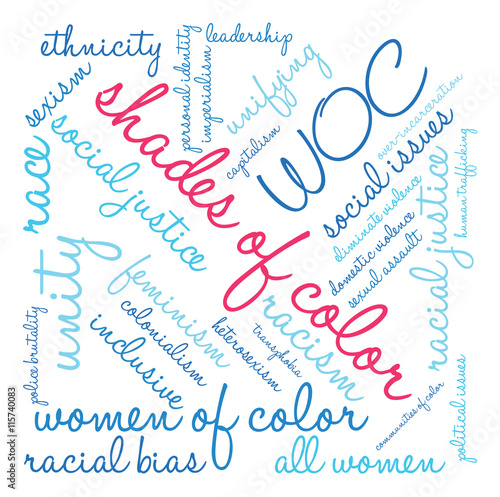 ethnicity
leadership
personal identity
imperialism
unifying
sexism
shades of color
WOC
capitalism
over-incarceration
social justice
social issues
race
human trafficking
eliminate violence
domestic violence
sexual assault
racial justice
unity
feminism
racism
colonialism
heterosexism
transphobia
inclusive
police brutality
women of color
communities of color
political issues
racial bias
all women
Adobe Stock | #115740083